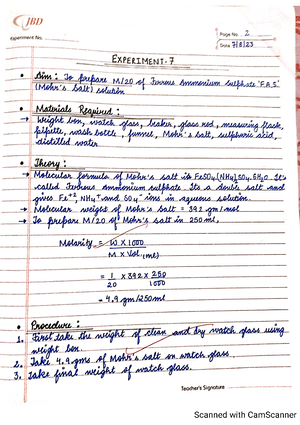 JBD
Experiment No.
Page No. 2
Date 7/8/23
EXPERIMENT-7
• Aim: To prepare M/20 of Ferrous Ammonium sulphate 'F.A.S'
(Mohr's Salt) solution
• Materials Required:
→ Weight box, watch glass, beaker, glass rod, measuring flask,
pipette, wash bottle, funnel, Mohr's salt, sulphuric acid,
distilled water
• Theory:
→ Molecular formula of Mohr's salt is FeSO4.(NH4)2SO4.6H2O. It's
called Ferrous Ammonium sulphate. Its a double salt and
gives Fe++, NH4+ and SO4-- ions in aqueous solution.
→ Molecular weight of Mohr's salt = 392 gm/mol
→ To prepare M/20 of Mohr's salt in 250 ml,
Molarity = W X 1000
M X Vol. (ml)
= 1 X 392 X 250
20 1000
= 4.9 gm/250ml
• Procedure:
1. First take the weight of clean and dry watch glass using
weight box.
2. Take 4.9 gms of Mohr's salt on watch glass.
3. Take final weight of watch glass.
Teacher's Signature
Scanned with CamScanner